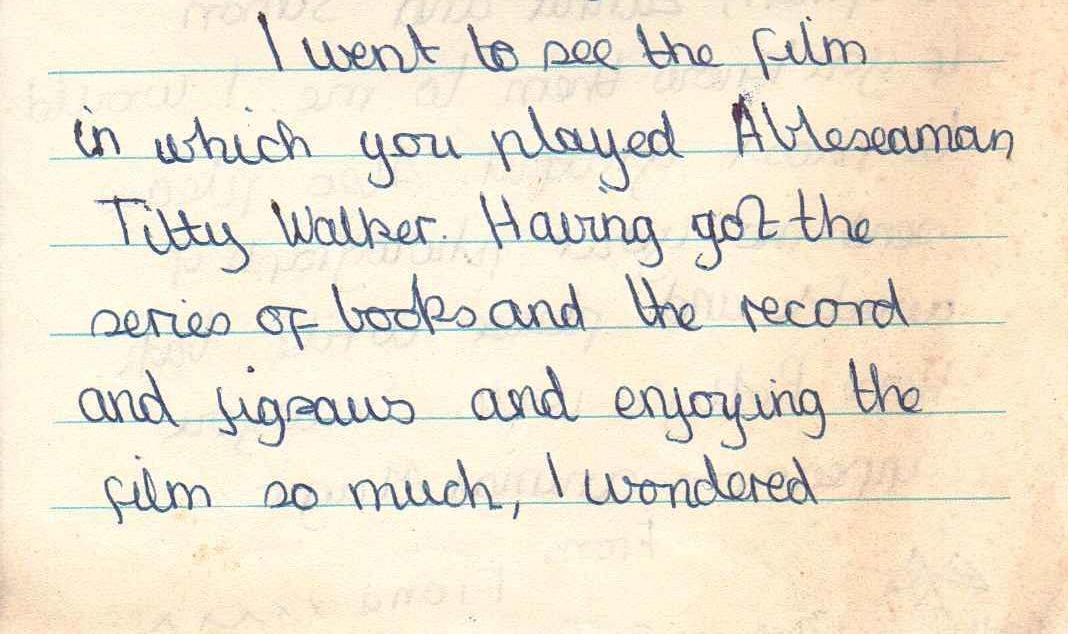 I went to see the film
in which you played Ableseaman
Titty Walker. Having got the
series of books and the record
and jigsaws and enjoying the
film so much, I wondered